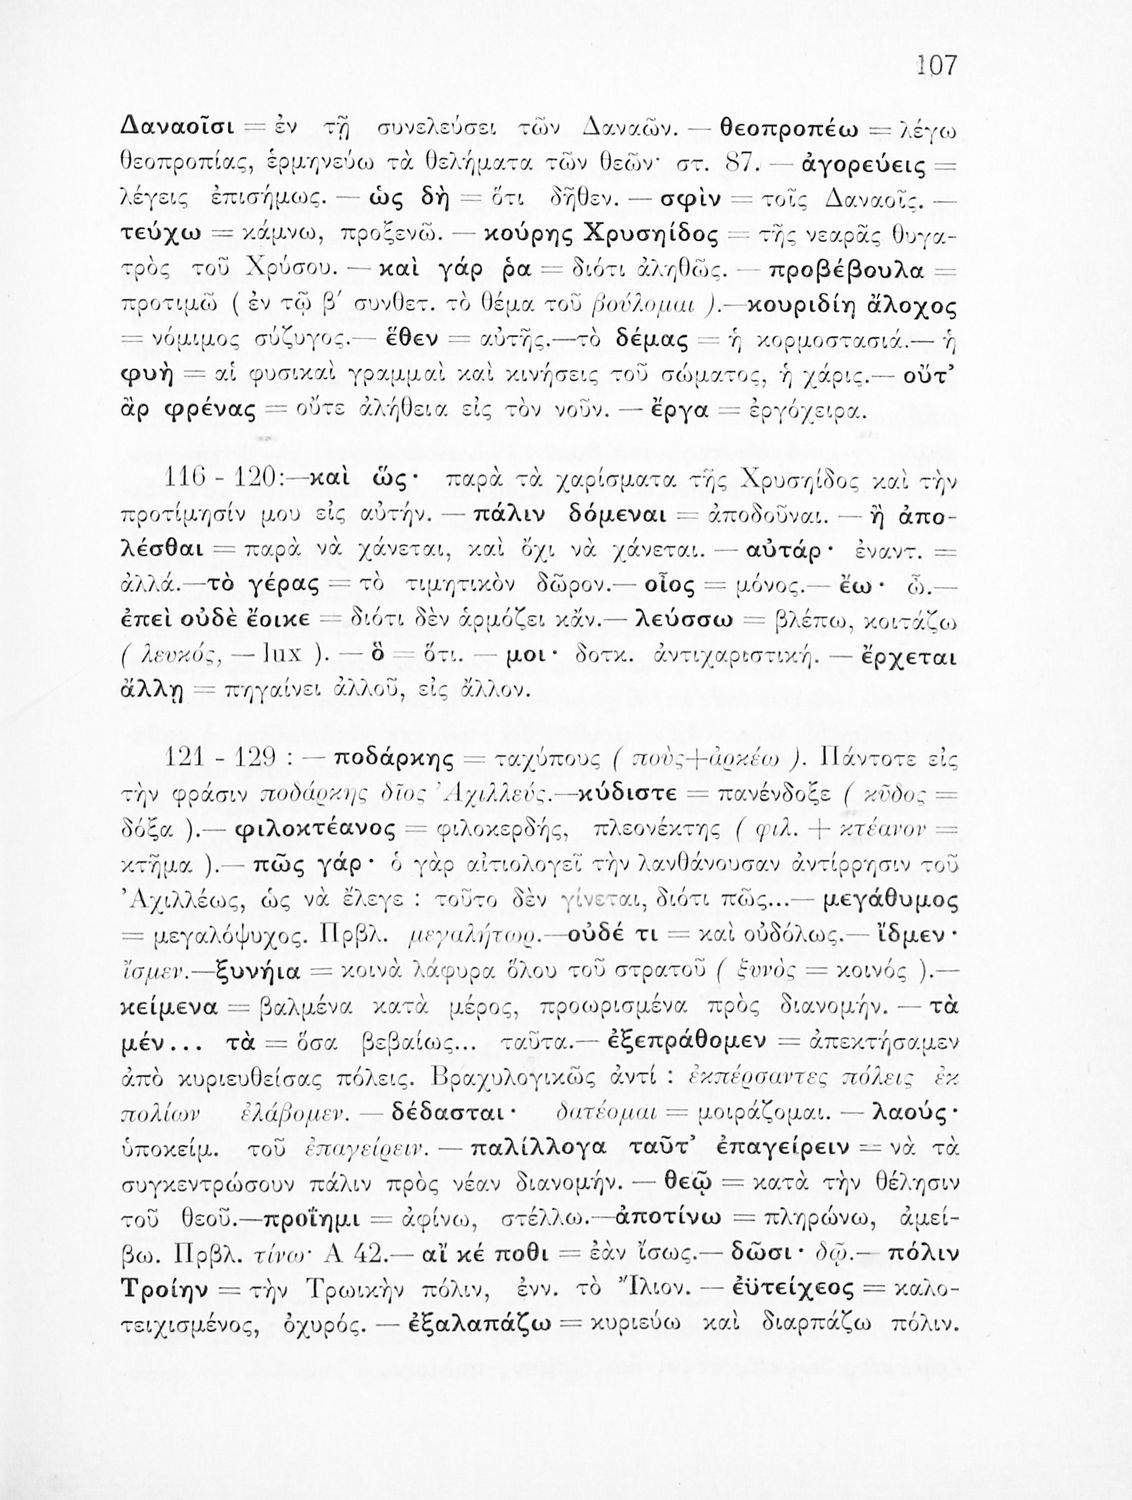 107
Δαναοῖσι = ἐν τῇ συνελεύσει τῶν Δαναῶν. — θεοπροπέω = λέγω
θεοπροπίας, ἑρμηνεύω τὰ θελήματα τῶν θεῶν· στ. 87. — ἀγορεύεις =
λέγεις ἐπισήμως. — ὡς δὴ = ὅτι δῆθεν. — σφὶν = τοῖς Δαναοῖς. —
τεύχω = κάμνω, προξενῶ. — κούρης Χρυσηίδος = τῆς νεαρᾶς θυγα-
τρὸς τοῦ Χρύσου. — καὶ γάρ ῥα = διότι ἀληθῶς. — προβέβουλα =
προτιμῶ ( ἐν τῷ β′ συνθετ. τὸ θέμα τοῦ βούλομαι ).—κουριδίη ἄλοχος
= νόμιμος σύζυγος.— ἕθεν = αὐτῆς.—τὸ δέμας = ἡ κορμοστασιά.— ἡ
φυὴ = αἱ φυσικαὶ γραμμαὶ καὶ κινήσεις τοῦ σώματος, ἡ χάρις.— οὔτ᾽
ἂρ φρένας = οὔτε ἀλήθεια εἰς τὸν νοῦν. — ἔργα = ἐργόχειρα.
116 - 120:—καὶ ὥς· παρὰ τὰ χαρίσματα τῆς Χρυσηίδος καὶ τὴν
προτίμησίν μου εἰς αὐτήν. — πάλιν δόμεναι = ἀποδοῦναι. — ἢ ἀπο-
λέσθαι = παρὰ νὰ χάνεται, καὶ ὄχι νὰ χάνεται. — αὐτάρ· ἐναντ. =
ἀλλά.—τὸ γέρας = τὸ τιμητικὸν δῶρον.— οἶος = μόνος.— ἔω· ὦ.—
ἐπεὶ οὐδὲ ἔοικε = διότι δὲν ἁρμόζει κἄν.— λεύσσω = βλέπω, κοιτάζω
( λευκός, — lux ). — ὃ = ὅτι. — μοι· δοτκ. ἀντιχαριστική. — ἔρχεται
ἄλλῃ = πηγαίνει ἀλλοῦ, εἰς ἄλλον.
121 - 129 : — ποδάρκης = ταχύπους ( ποὺς+ἀρκέω ). Πάντοτε εἰς
τὴν φράσιν ποδάρκης δῖος Ἀχιλλεύς.—κύδιστε = πανένδοξε ( κῦδος =
δόξα ).— φιλοκτέανος = φιλοκερδής, πλεονέκτης ( φιλ. + κτέανον =
κτῆμα ).— πῶς γάρ· ὁ γὰρ αἰτιολογεῖ τὴν λανθάνουσαν ἀντίρρησιν τοῦ
Ἀχιλλέως, ὡς νὰ ἔλεγε : τοῦτο δὲν γίνεται, διότι πῶς...— μεγάθυμος
= μεγαλόψυχος. Πρβλ. μεγαλήτωρ.—οὐδέ τι = καὶ οὐδόλως.— ἴδμεν·
ἴσμεν.—ξυνήια = κοινὰ λάφυρα ὅλου τοῦ στρατοῦ ( ξυνὸς = κοινός ).—
κείμενα = βαλμένα κατὰ μέρος, προωρισμένα πρὸς διανομήν. — τὰ
μέν... τὰ = ὅσα βεβαίως... ταῦτα.— ἐξεπράθομεν = ἀπεκτήσαμεν
ἀπὸ κυριευθείσας πόλεις. Βραχυλογικῶς ἀντί : ἐκπέρσαντες πόλεις ἐκ
πολίων ἐλάβομεν. — δέδασται· δατέομαι = μοιράζομαι. — λαούς·
ὑποκείμ. τοῦ ἐπαγείρειν. — παλίλλογα ταῦτ᾽ ἐπαγείρειν = νὰ τὰ
συγκεντρώσουν πάλιν πρὸς νέαν διανομήν. — θεῷ = κατὰ τὴν θέλησιν
τοῦ θεοῦ.—προΐημι = ἀφίνω, στέλλω.—ἀποτίνω = πληρώνω, ἀμεί-
βω. Πρβλ. τίνω· Α 42.— αἴ κέ ποθι = ἐὰν ἴσως.— δῶσι· δῷ.— πόλιν
Τροίην = τὴν Τρωικὴν πόλιν, ἐνν. τὸ Ἴλιον. — ἐϋτείχεος = καλο-
τειχισμένος, ὀχυρός. — ἐξαλαπάζω = κυριεύω καὶ διαρπάζω πόλιν.